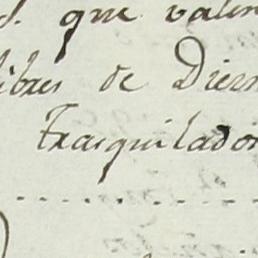 que valen
libres de Diezm
Trasquilador